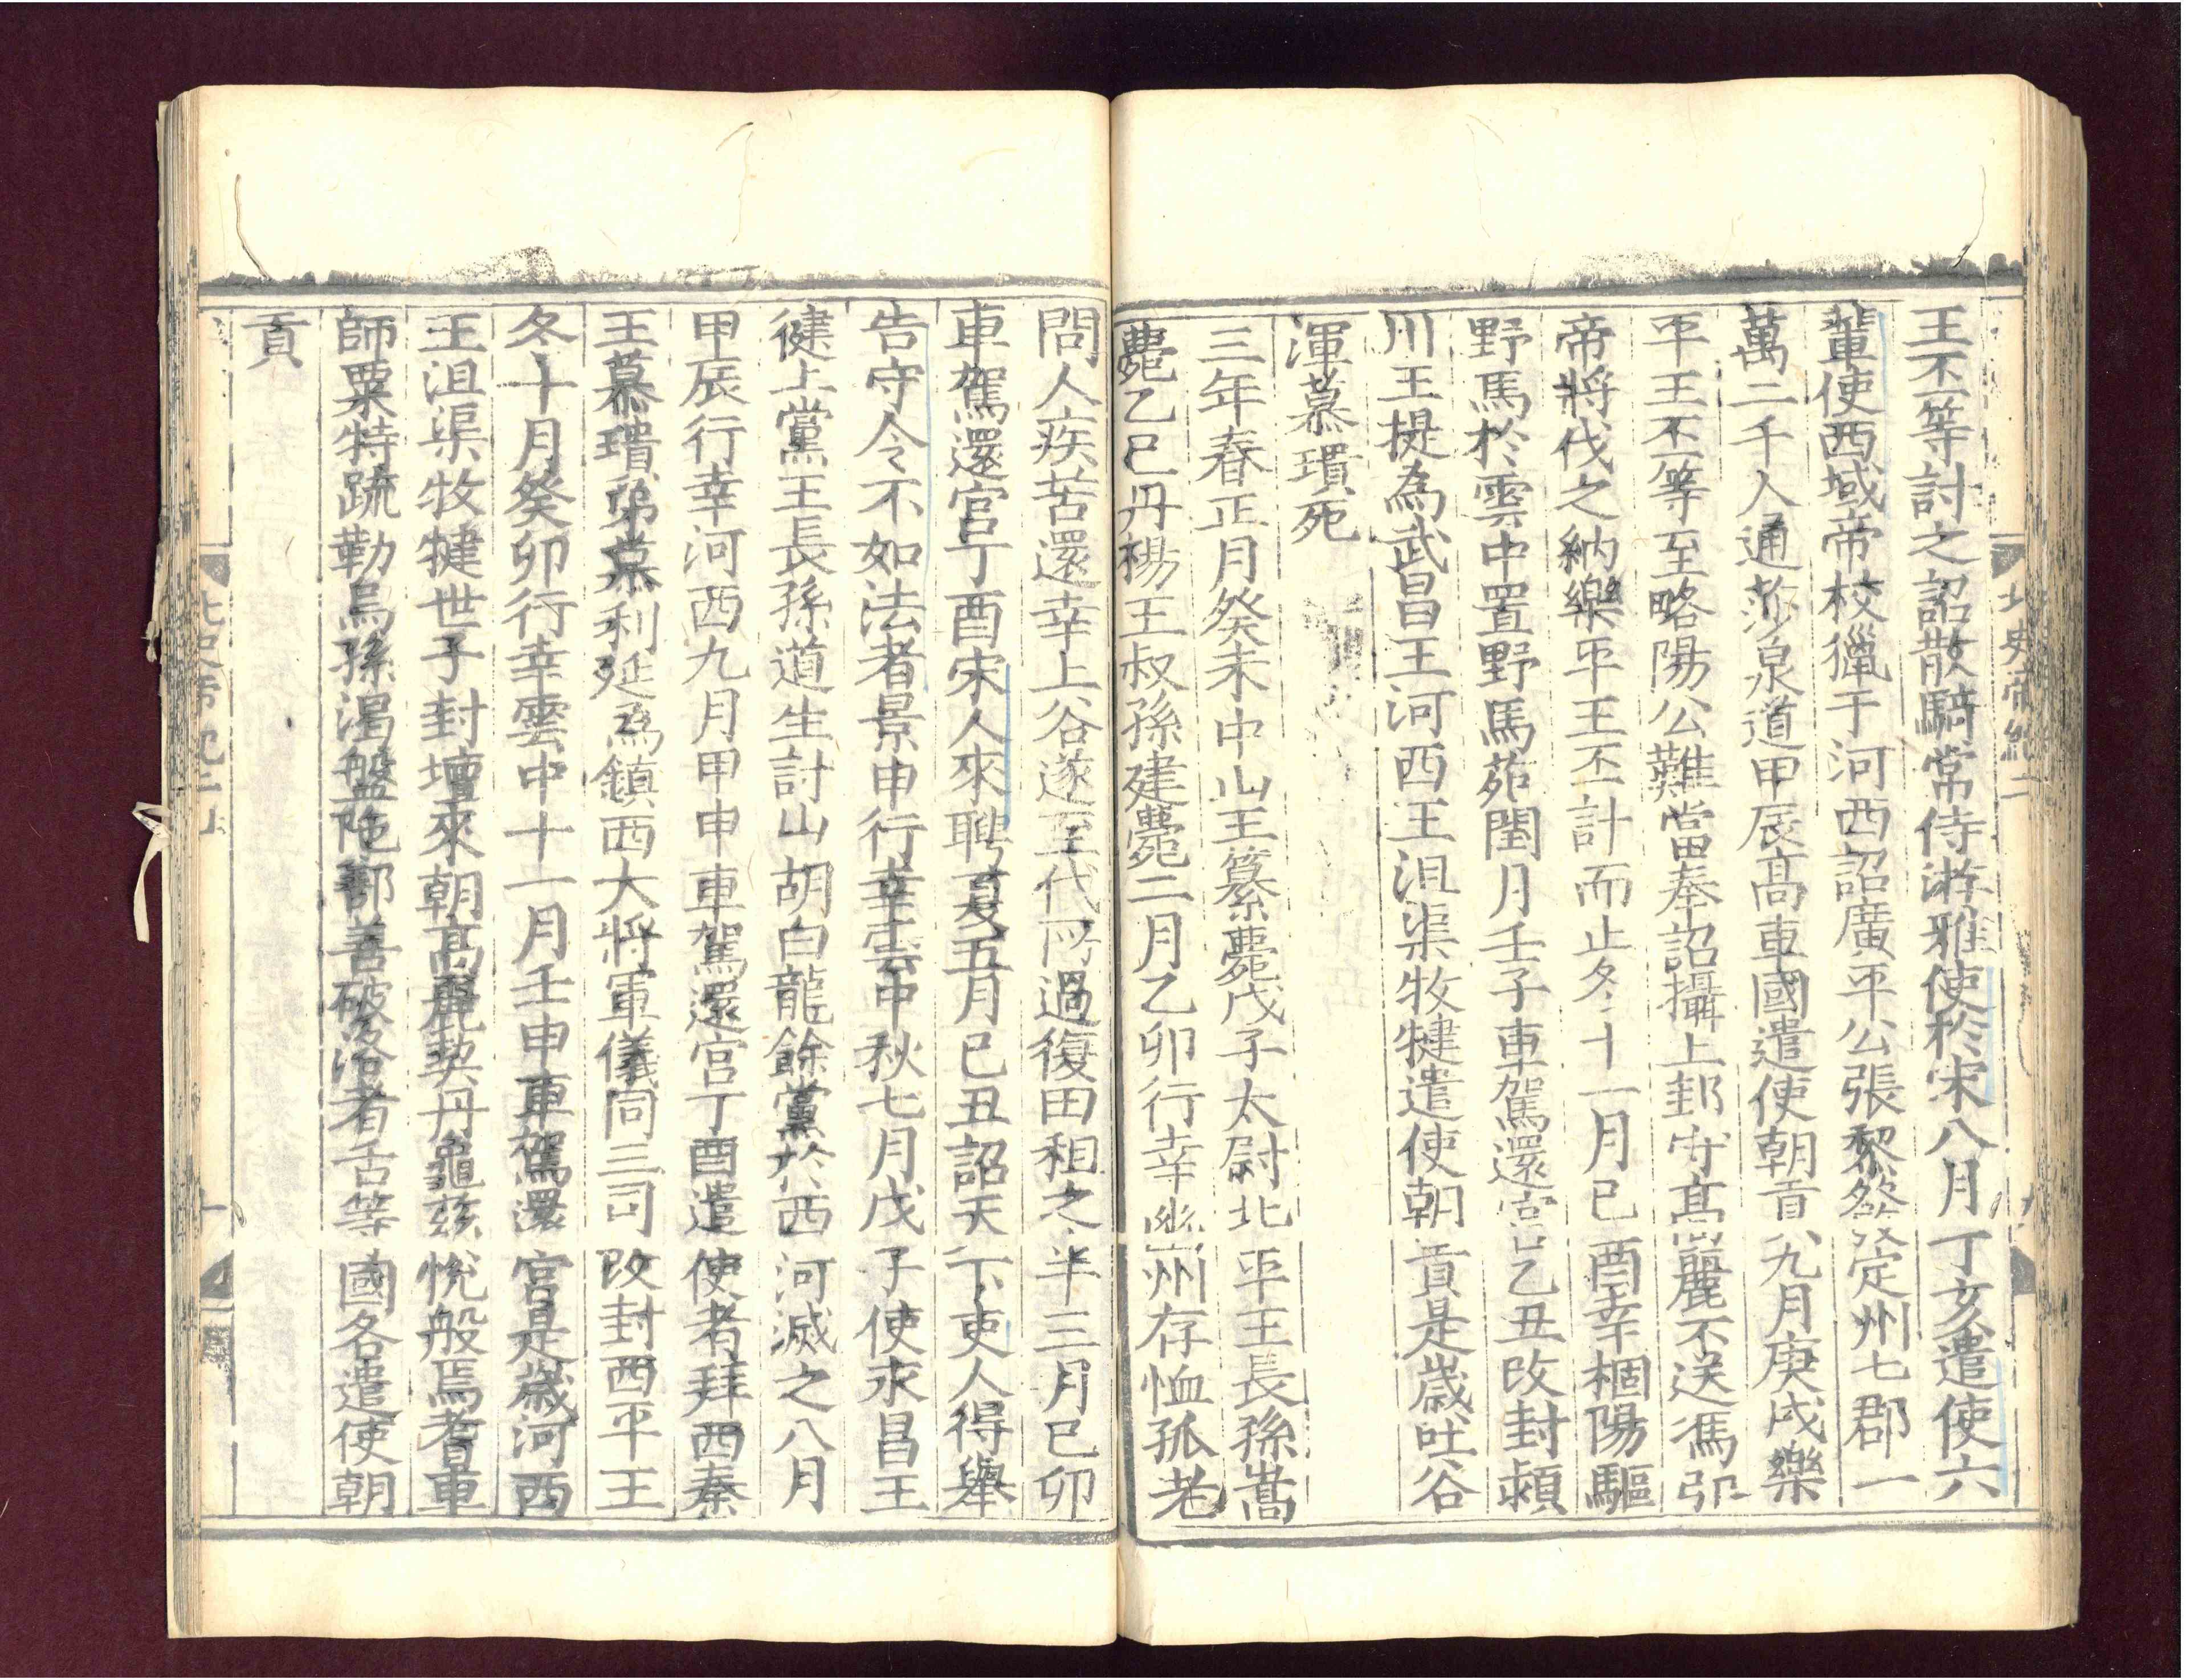 王丕等討之詔散騎常侍游雅使於宋八月丁亥遣使六
輩使西域帝校獵于河西詔廣平公張黎發定州七郡一
萬二千人通莎泉道甲辰高車國遣使朝貢九月庚戌樂
平王丕等至略陽公難當奉詔攝上邽守高麗不送馮弘
帝將伐之納樂平王丕計而止冬十一月己酉幸棝陽驅
野馬於雲中置野馬苑閏月壬子車駕還宮乙丑改封潁
川王提為武昌王河西王沮渠牧犍遣使朝貢是歲吐谷
渾慕璝死
三年春正月癸未中山王纂薨戊子太尉北平王長孫嵩
薨乙巳丹楊王叔孫建薨二月乙卯行幸幽州存恤孤老
問人疾苦還幸上谷遂至代所過復田租之半三月己卯
車駕還宮丁酉宋人來聘夏五月己丑詔天下吏人得舉
告守令不如法者景申行幸雲中秋七月戊子使永昌王
健上黨王長孫道生討山胡白龍餘黨於西河滅之八月
甲辰行幸河西九月甲申車駕還宮丁酉遣使者拜西秦
王慕璝弟慕利延為鎮西大將軍儀同三司改封西平王
冬十月癸卯行幸雲中十一月壬申車駕還宮是歲河西
王沮渠牧犍世子封壇來朝高麗契丹龜茲悅般焉耆車
師粟特疏勒烏孫渴盤陁鄯善破洛者舌等國各遣使朝
貢
北史帝紀二